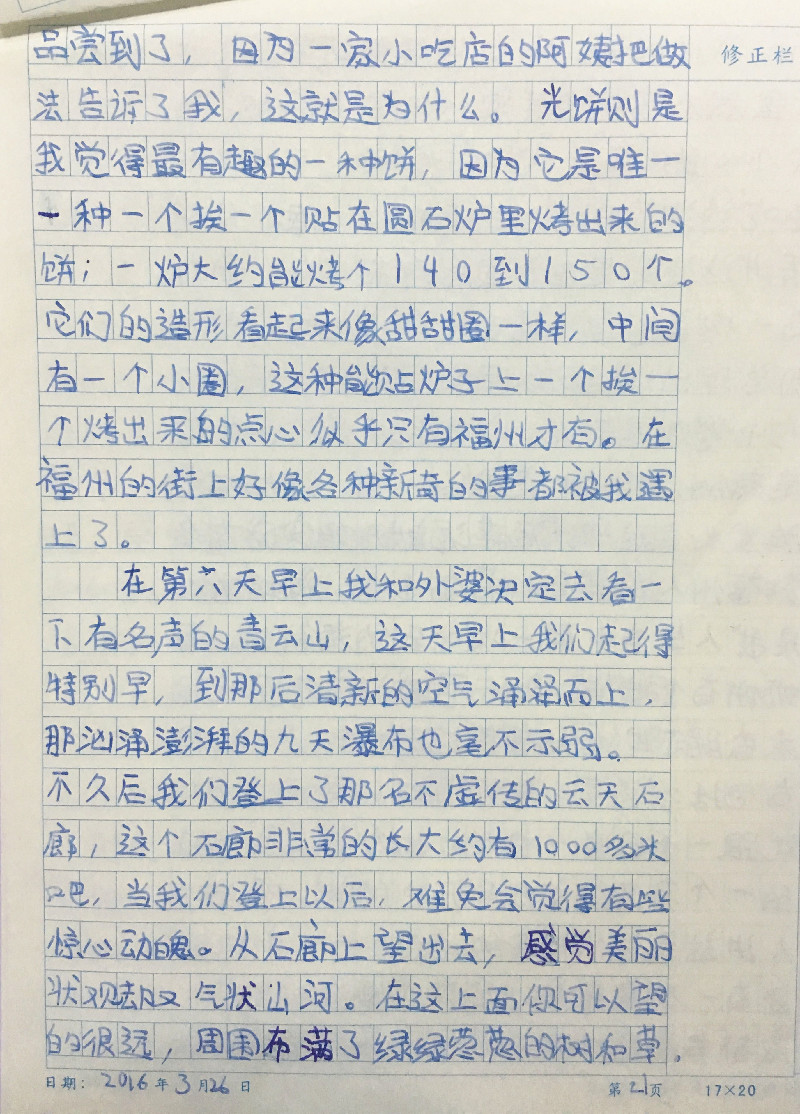 品尝到了，因为一家小吃店的阿姨把做
修正栏
法告诉了我，这就是为什么。光饼则是
我觉得最有趣的一种饼，因为它是唯一
一种一个挨一个贴在圆石炉里烤出来的
饼；一炉大约能烤个140到150个。
它们的造形看起来像甜甜圈一样，中间
有一个小圈，这种能贴炉子上一个挨一
个烤出来的点心似乎只有福州才有。在
福州的街上好像各种新奇的事都被我遇
上了。
在第六天早上我和外婆决定去看一
下有名声的青云山，这天早上我们起得
特别早，到那后清新的空气涌涌而上，
那汹涌澎湃的九天瀑布也毫不示弱。
不久后我们登上了那名不虚传的云天石
廊，这个石廊非常的长大约有1000多米
吧，当我们登上以后，难免会觉得有些
惊心动魄。从石廊上望出去，感觉美丽
状观却又气状山河。在这上面你可以望
的很远，周围布满了绿绿葱葱的树和草。
日期：2016年3月26日
第21页 17×20